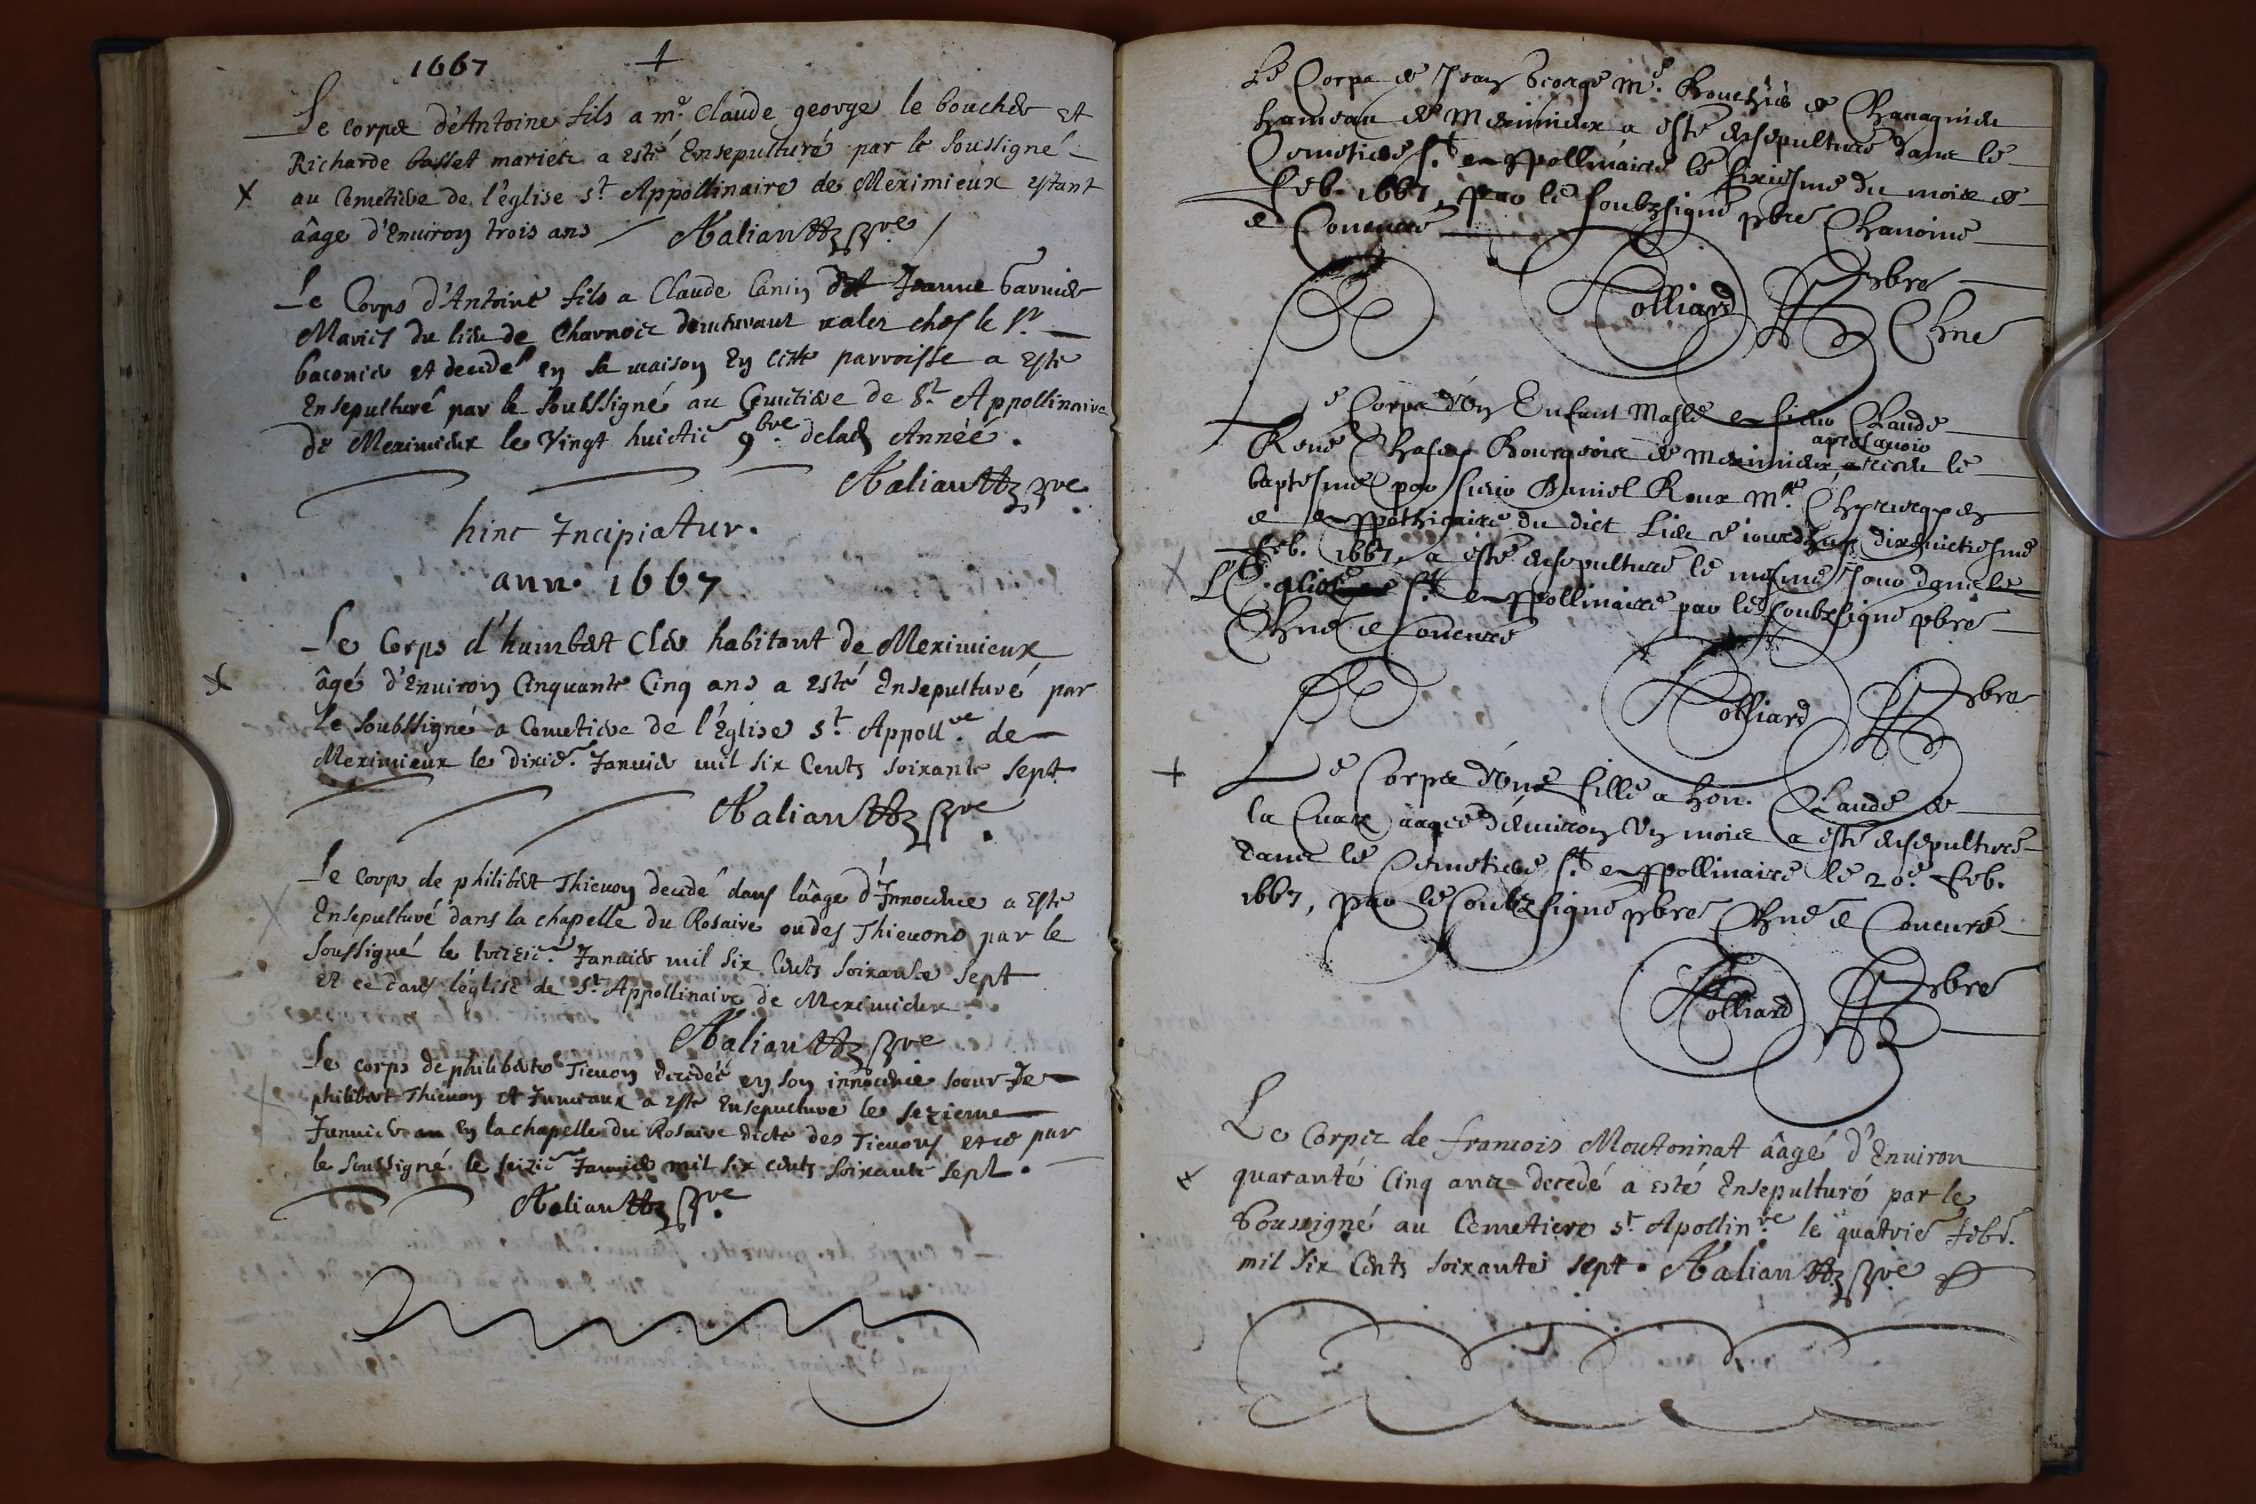 1667
Le corps d'Antoine fils a m.e Claude george le boucher et
Richarde basset mariez a esté Ensepulturé par le soussigné
au Cemetiere de l'église s.t Appollinaire de Meximieux estant
âage d'Enuiron trois ans
Le Corps d'Antoine fils a Claude Canin et Jeanne barnier
Mariés du lieu de Charnoz demeurant valet chez le s.r
baconier et decedé en sa maison en cette parroisse a esté
Ensepulturé par le soubssigné au Cemetiere de s.t Appollinaire
de Meximieux le Vingt huictie 9.bre de lad Année.
hinc Incipiatur.
ann. 1667
Le Corps d'humbert Cler habitant de Meximieux
âgé d'Enuiron Cinquante Cinq ans a esté Ensepulturé par
Le soubssigné a Cemetiere de l'Eglise s.t Appoll.re de
Meximieux le dixie. Januier mil six Cents soixante sept
Le Corps de philibert Thieuon decedé dans lâage d'Innocence a esté
Ensepulturé dans la chapelle du Rosaire ou des Thieuons par le
soussigné le Januier mil six Cents soixante sept
et ce dans l'église de s.t Appollinaire de Meximieux
Le corps de philiberte Tieuon decedée en son innocence soeur de
philibert Thieuon et Jumeaux a esté Ensepulturé le sezieme
Januier en la chapelle du Rosaire dicte des Tieuons et ce par
le soussigné le seizie Januier mil six cents soixante sept.
Le Corps de Jean George M.e Bouchier de Chauagnieu
hameau de Meximieux a esté ensepulturé dans le
Cemetiere s.t Appollinaire le sixiesme du mois de
Feb. 1667, par le soubzsigné pbre Chanoine
& Concuré
Folliard pbre
Chne
Le Corps d'un Enfant Masle a sieur Claude
René Bourgeois de Meximieux apres auoir receu le
baptesme par sieur Daniel Roux M.re Chyrurgien
& Appothicaire du dict Lieu ce iourdhuy dixhuictiesme
Feb. 1667, a esté ensepulturé le mesme Jour dans le
L'Eglise s.t Appollinaire par le soubzsigné pbre
Chne & Concuré
Folliard pbre
Le Corps d'une fille a hon. Claude de
la Cuaz aagée d'enuiron Un mois a esté ensepulturé
dans le Cemetiere s.t Appollinaire le 20.e Feb.
1667, par le soubzsigné pbre Chne & Concuré
Folliard pbre
Le Corps de francois Moutonnat âagé d'Enuiron
quarante Cinq ans decedé a esté Ensepulturé par le
soussigné au Cemetiere s.t Apollin.re le quatrie Febr.
mil six Cents soixante sept.